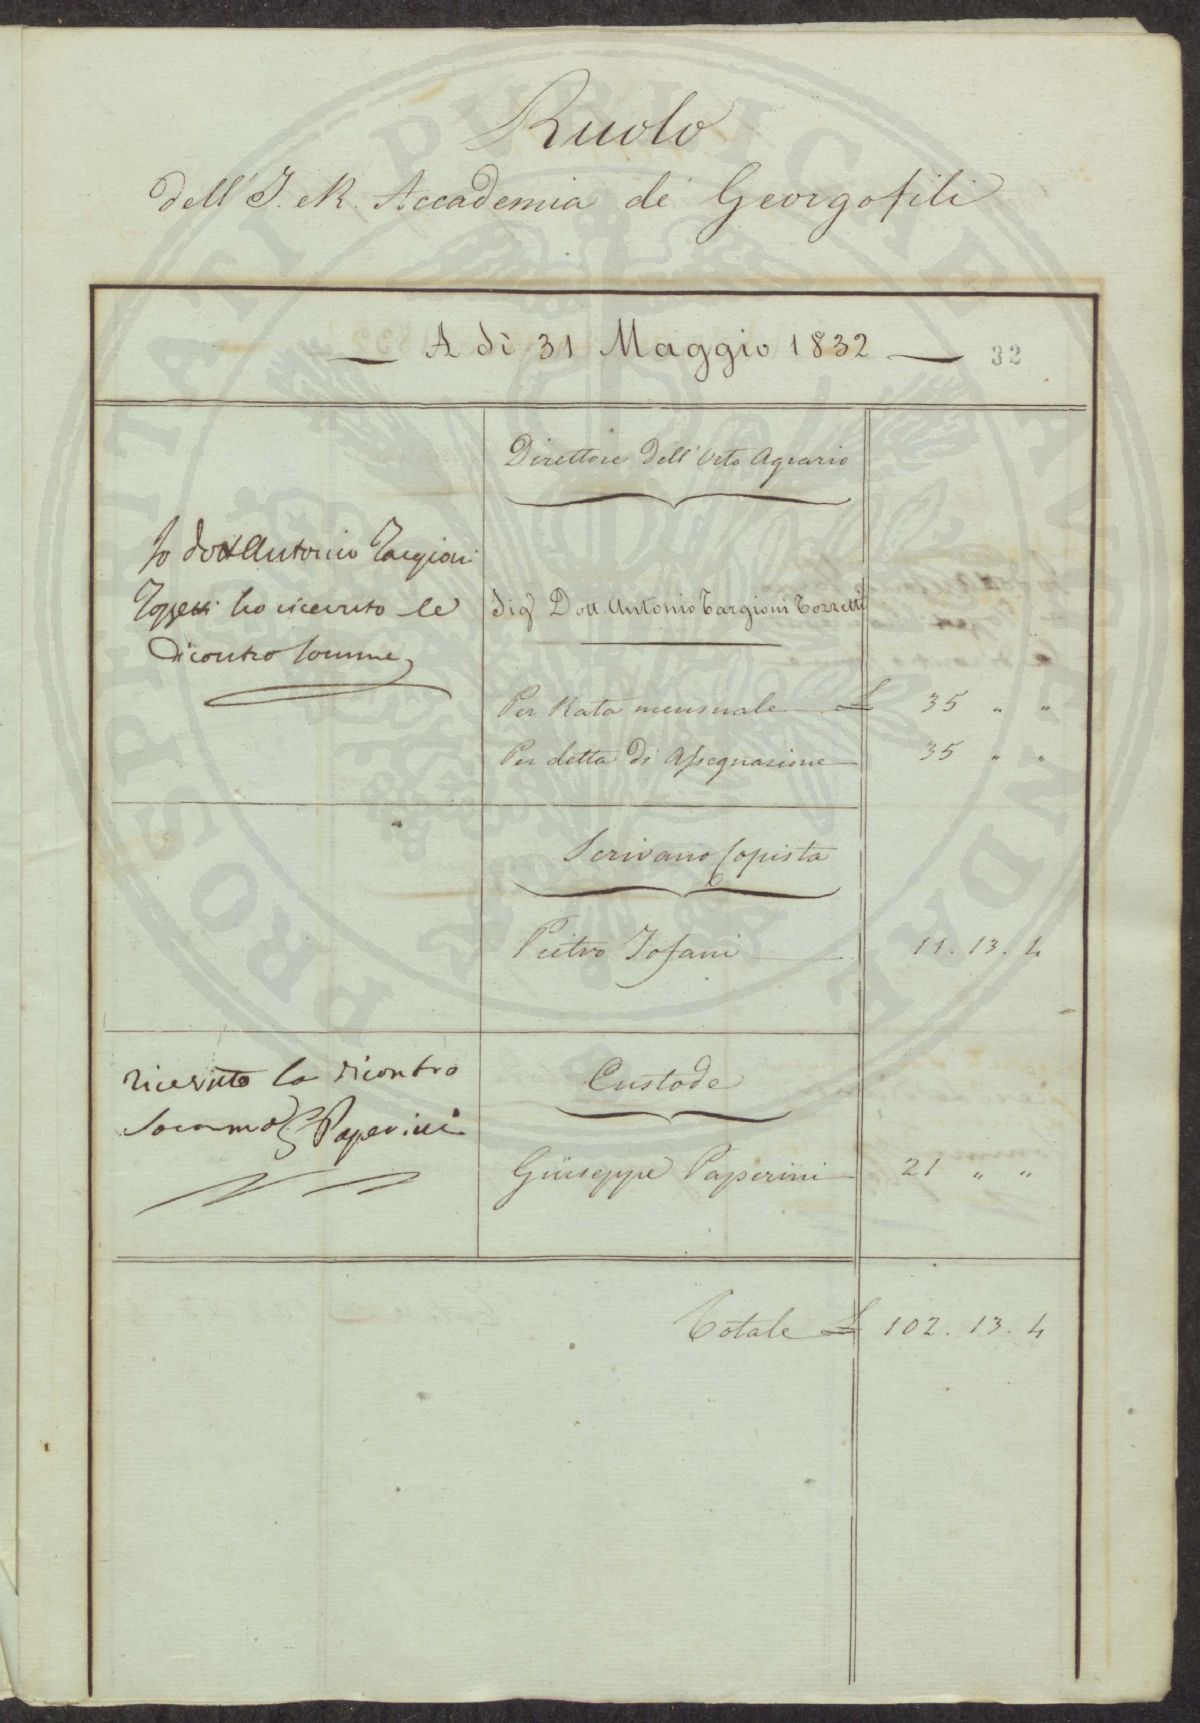 Ruolo
dell' I. e R. Accademia de Georgofili
A dì 31 Maggio 1832
32
Direttore dell' Orto Agrario
Io dott Antonio Targioni
Tozzetti ho ricevuto le
di contro somme
Sigr Dott. Antonio Targioni Tozzetti
Per Rata mensuale £ 35 " "
Per detta di Assegnazione 35 " "
Scrivano Copista
Pietro Tofani 11. 13. 4
ricevuto la dicontro
somma G Paperini
Custode
Giuseppe Paperini 21 " "
Totale £ 102. 13. 4
PROSPERITATI PUBLICAE AUGENDAE